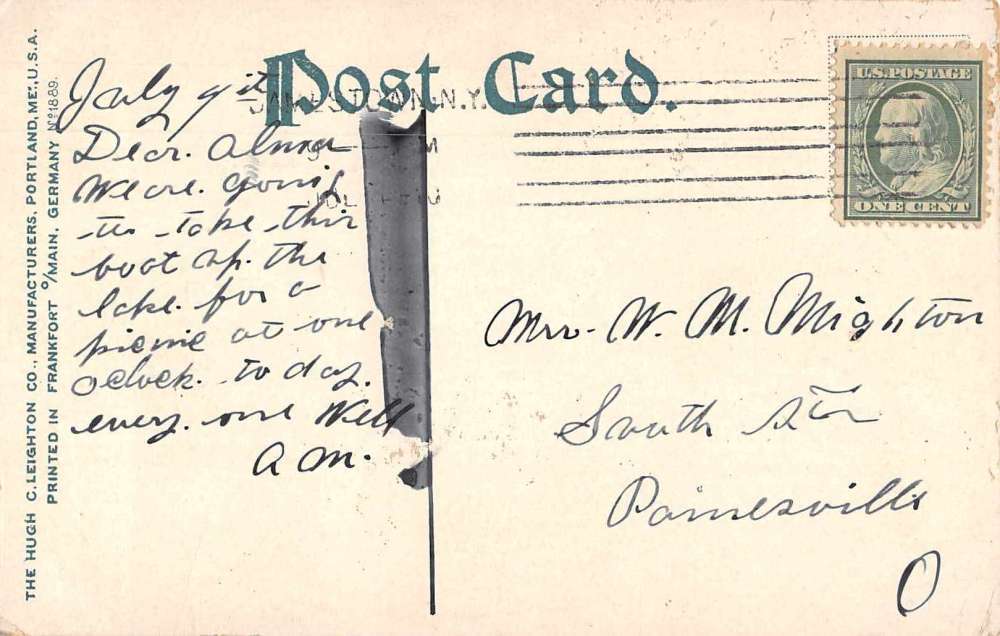 THE HUGH C. LEIGHTON CO., MANUFACTURERS, PORTLAND, ME., U.S.A.
PRINTED IN FRANKFORT o/MAIN, GERMANY No 1889.
Post Card.
JAMESTOWN, N.Y.
M
JUL
U.S. POSTAGE
ONE CENT
July 9
Dear. Alma
We are. going
to take this
boat up. the
lake. for a
picnic at one
oclock. to day.
every. one Well
A M.
Mrs. W. M. Mighton
South
Painesville
O